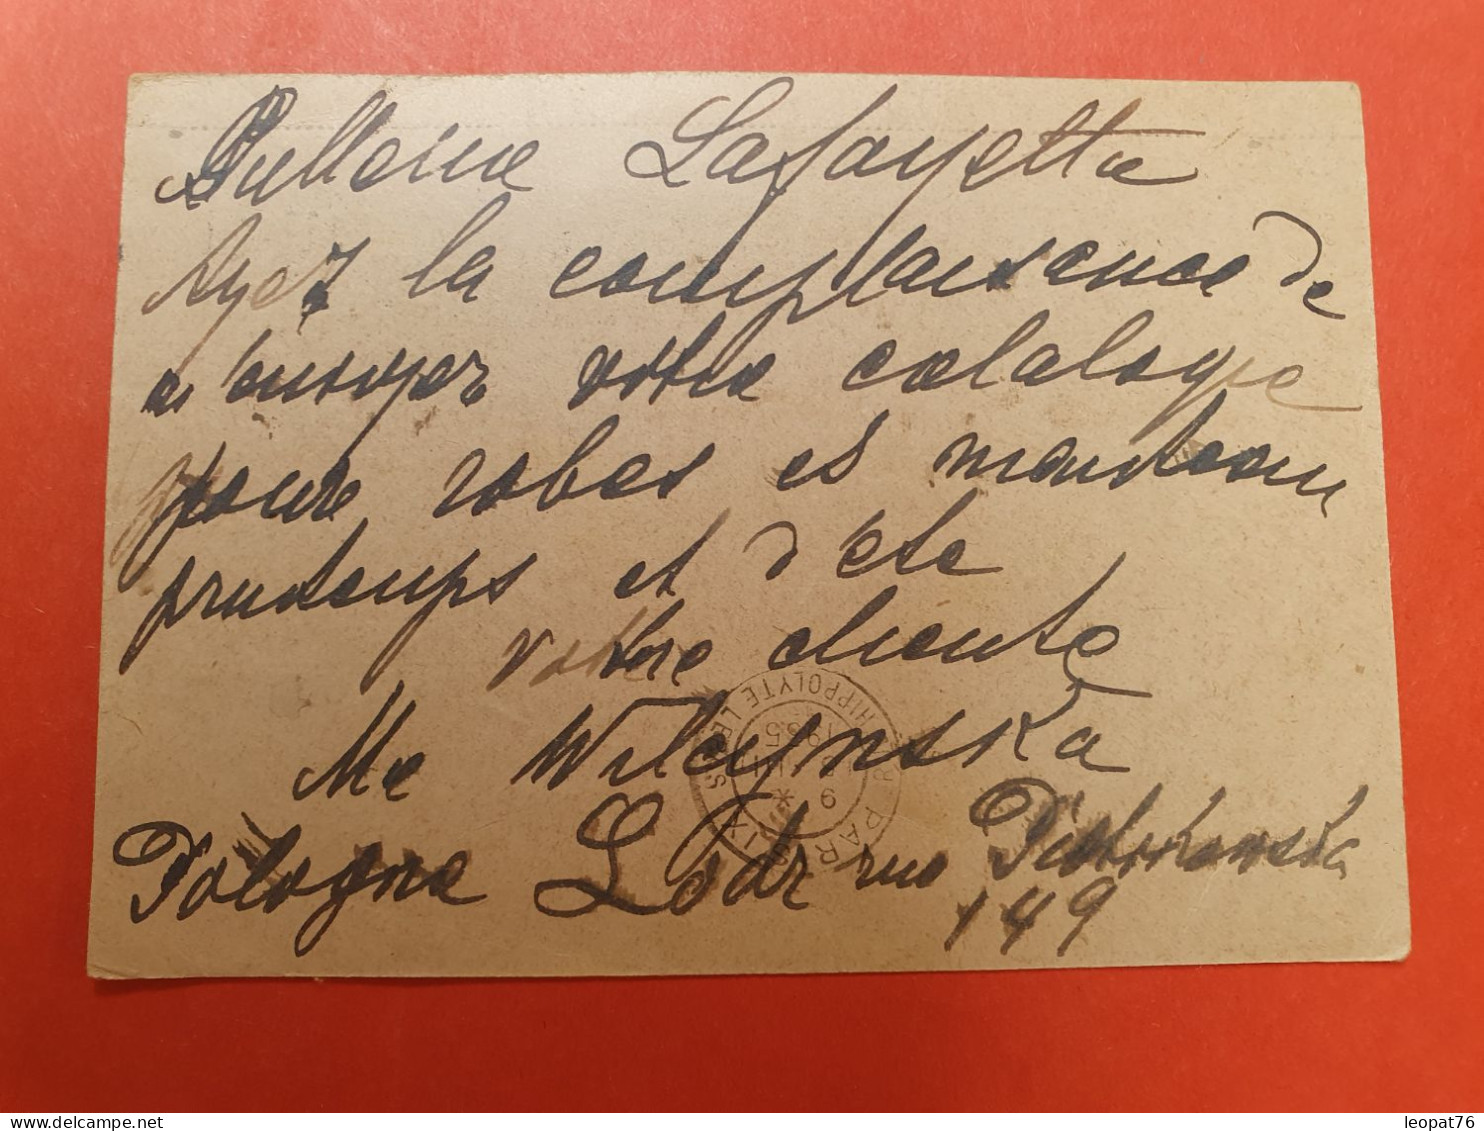 Lafayette
Ayez la complaisance de
m'envoyer votre catalogue
pour robes et manteau
printemps et d'été
votre cliente
Me Wilczynska
Pologne Lodz rue Piotrkowska
149
PARIS XI
R. HIPPOLYTE LEBAS
1935
leopat76